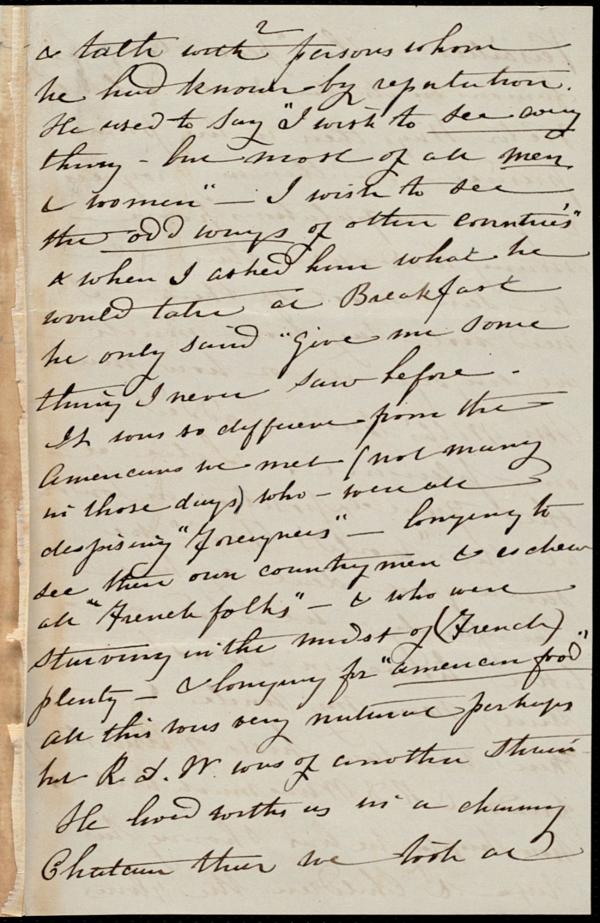 2
& talk with persons whom
he had known by reputation.
He used to say "I wish to see every
thing - but most of all men
& women" — I wish to see
the odd ways of other countries"
& when I asked him what he
would take at Breakfast
he only said "Give me some
thing I never saw before -
It was so different from the
Americans we met (not many
in those days) who - were all
despising "foreigners" — longing to
see their own countrymen & eschew
all "French folks" - & who were
starving in the midst of (French)
plenty — & longing for "american food"
all this was very natural perhaps
but R. D. W. was of another strain
He lived with us in a charming
Chateau that we took at